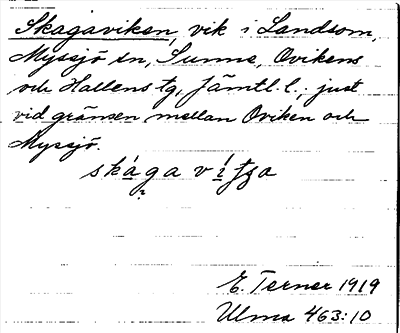 Skagaviken, vik i Landsom,
Myssjö sn, Sunne, Ovikens
och Hallens tg, Jämtl. l.; just
vid gränsen mellan Oviken och
Myssjö.
skága v
E. Terner 1919
Ulma 463:10